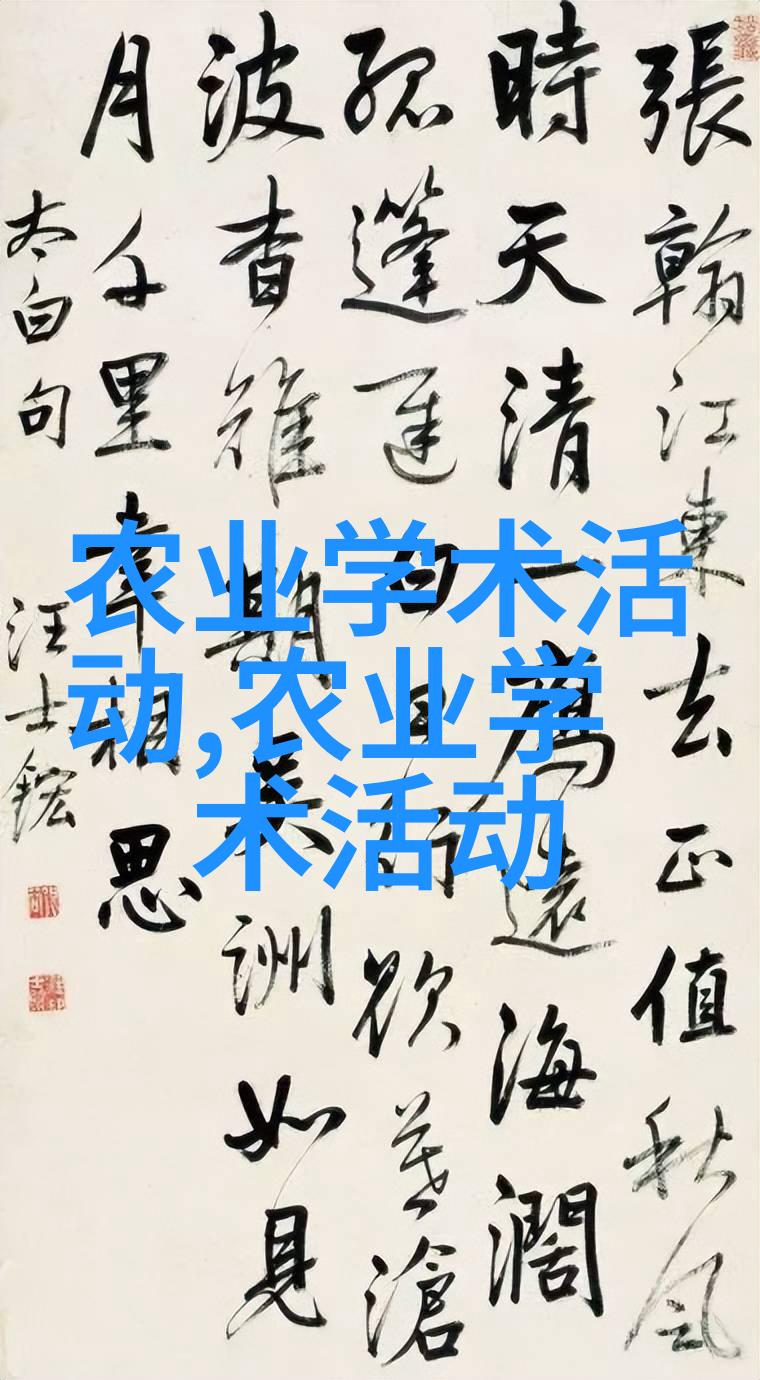 張翰江東去正值秋風
時天清一鴈遠海濶
孤篷遲白日行欲暮滄
波杳難期吳洲如見
月千里幸相思
太白句
汪士鋐
农业学术活
动,农业学
术活动